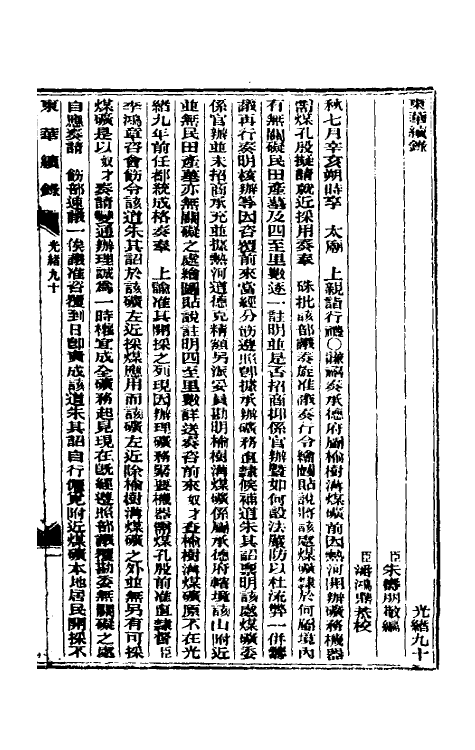 東華續錄
光緒九十
臣朱壽朋敬編
臣潘鴻鼎恭校
秋七月辛亥朔時享　太廟　上親詣行禮〇謙禧奏承德府屬榆樹溝煤礦前因熱河開辦礦務機器
需煤孔殷擬請就近採用奏奉　硃批該部議奏旋准議奏行令繪圖貼說將該處煤礦隸於何屬境內
有無關礙民田產墓及四至里數逐一註明並是否招商抑係官辦暨如何設法嚴防以杜流弊一併籌
議再行奏明核辦等因咨覆前來當經分飭遵照即據承辦礦務直隸候補道朱其詔稟明該處煤礦委
係官辦並未招商承充並據熱河道德克精額另派委員勘明榆樹溝煤礦係屬承德府轄境該山附近
並無民田產墓亦無關礙之處繪圖貼說註明四至里數詳送奏咨前來奴才查榆樹溝煤礦原不在光
緒九年前任都統成格奏奉　上諭准其開採之列現因辦理礦務緊要機器需煤孔殷前准直隸督臣
李鴻章咨會飭令該道朱其詔於該礦左近採煤應用而該礦左近除榆樹溝煤礦之外並無另有可採
煤礦是以奴才奏請變通辦理誠為一時權宜成全礦務起見現在既經遵照部議覆勘委無關礙之處
自應奏請　飭部速議一俟議准咨覆到日即責成該道朱其詔自行僱覓附近煤礦本地居民開採不
東華續錄
光緒九十